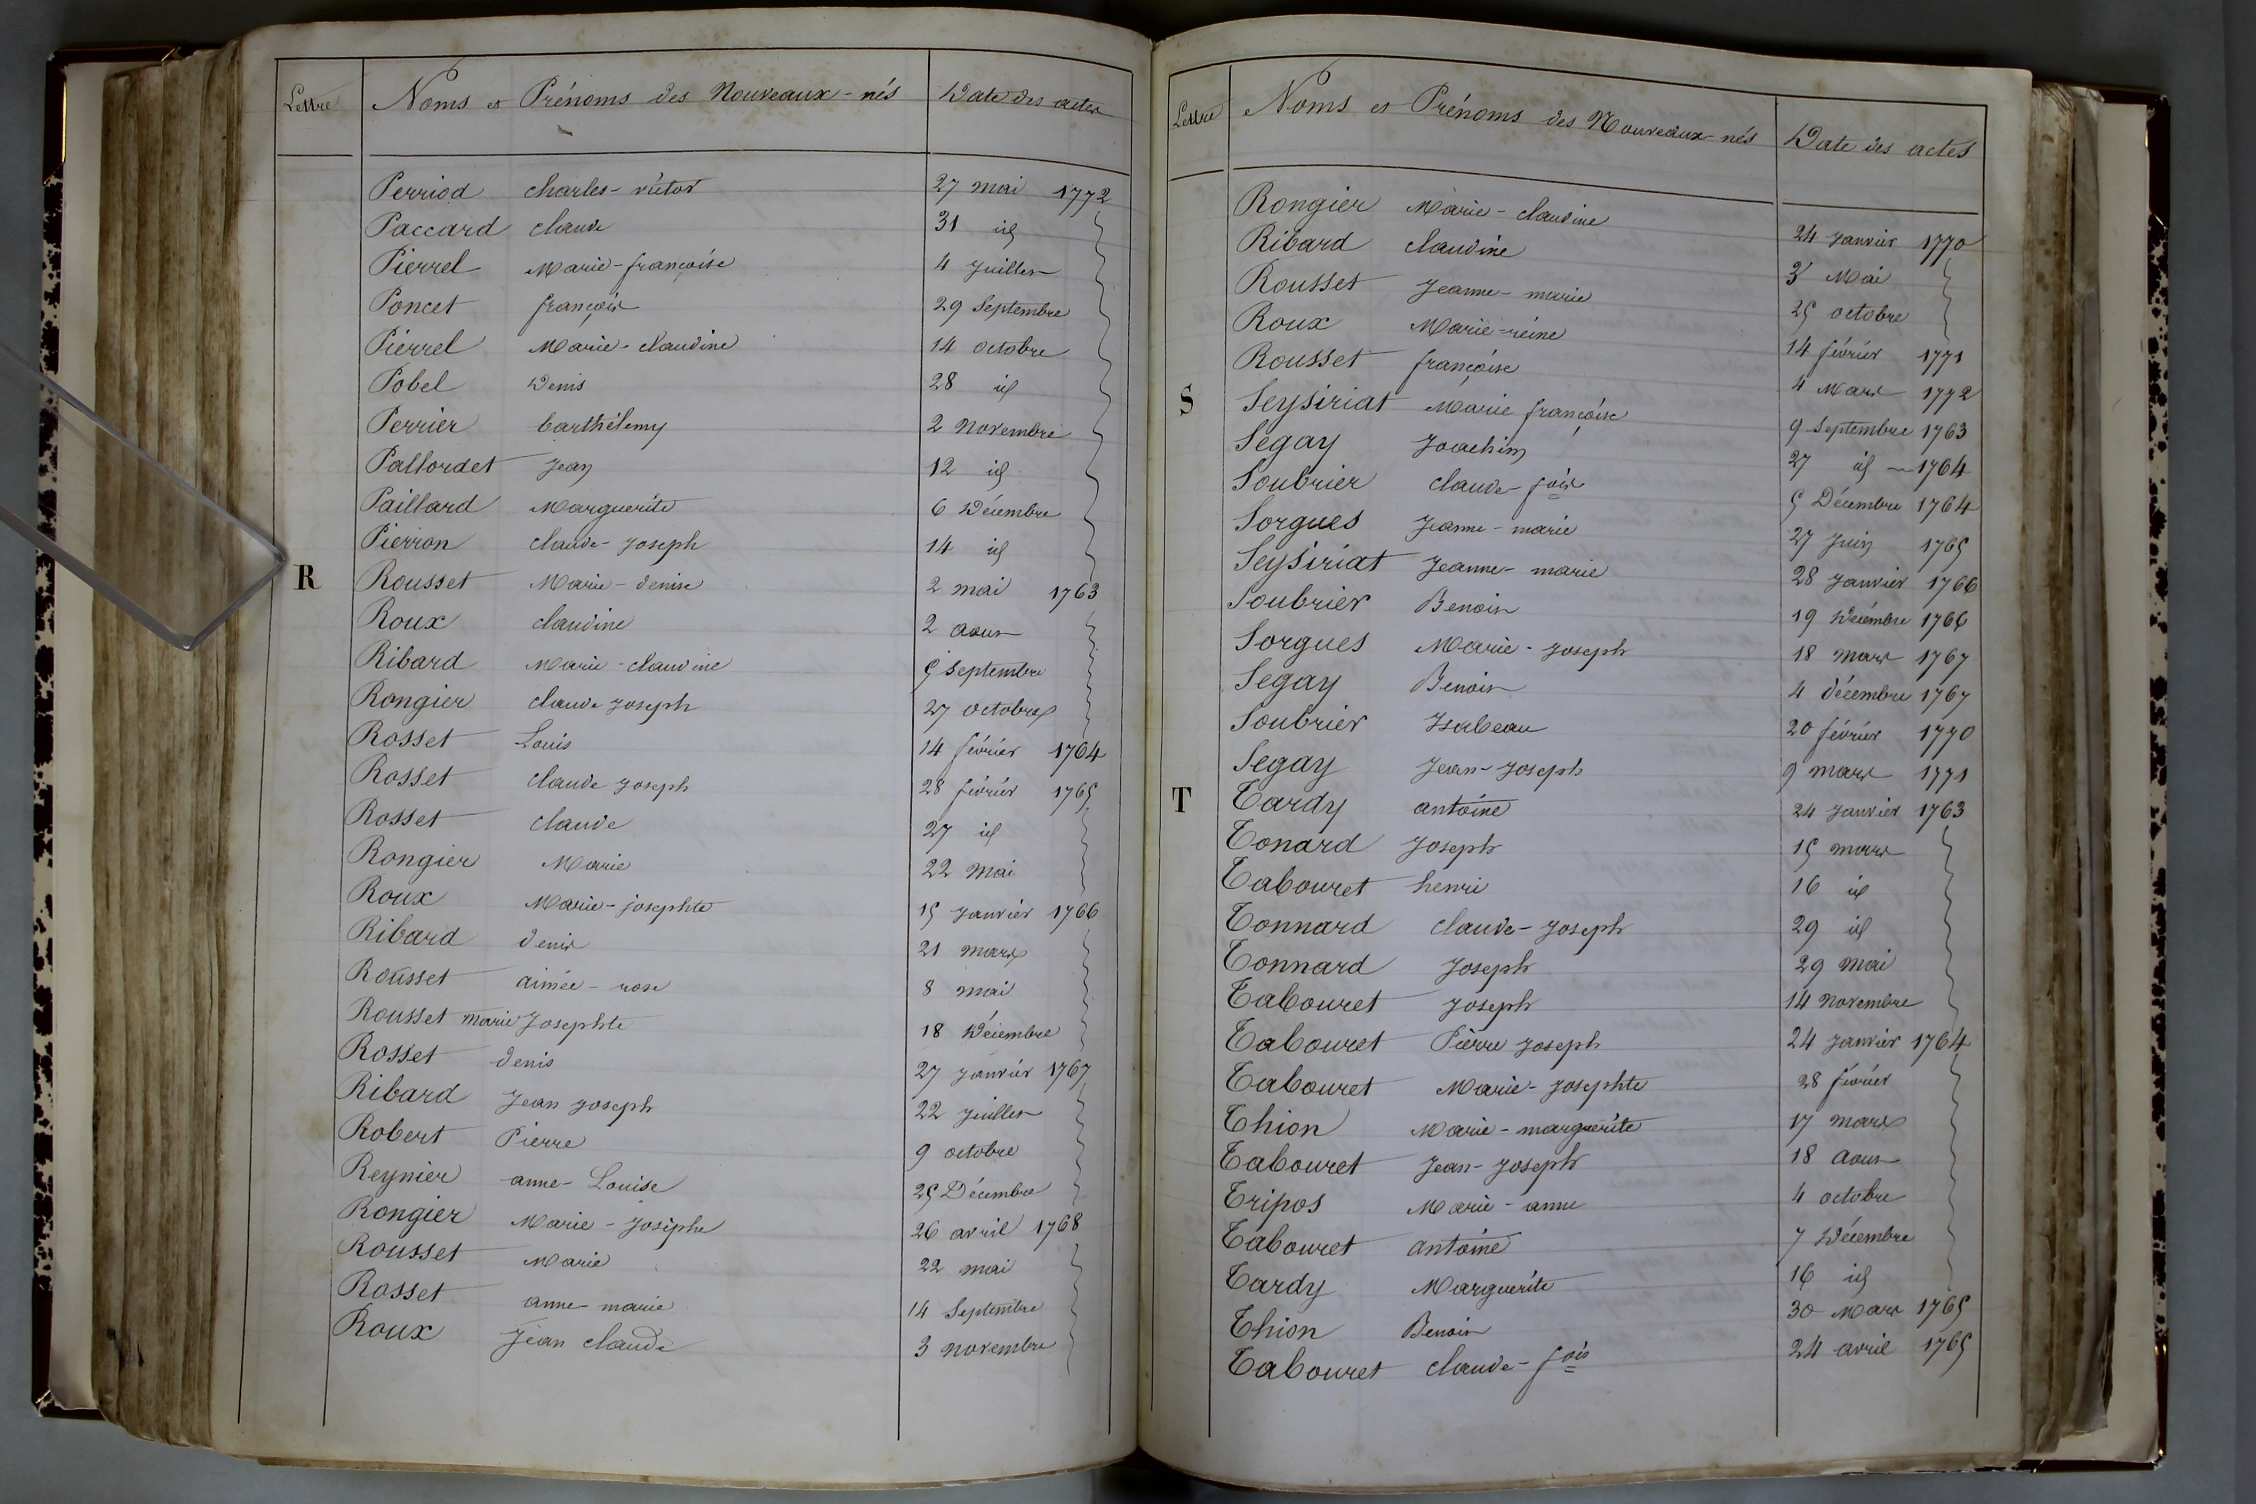 Lettre Noms et Prénoms des Nouveaux-nés Date des actes
Perriod charles-victor 27 mai 1772
Paccard claude 31 id
Pierrel Marie-françoise 4 Juillet
Poncet françois 29 Septembre
Pierrel Marie-claudine 14 octobre
Pobel Denis 28 id
Perrier barthélemy 2 Novembre
Pallordet Jean 12 id
Paillard Marguerite 6 Décembre
Pierron claude-Joseph 14 id
R Rousset Marie-denise 2 mai 1763
Roux claudine 2 aout
Ribard Marie-claudine 5 Septembre
Rongier claude Joseph 27 octobre
Rosset Louis 14 février 1764
Rosset claude Joseph 28 février 1765
Rosset claude 27 id
Rongier Marie 22 Mai
Roux Marie-josephte 15 Janvier 1766
Ribard denis 21 mars
Rousset aimée-rose 8 mai
Rousset Marie Josephte 18 Décembre
Rosset denis 27 Janvier 1767
Ribard Jean Joseph 22 Juillet
Robert Pierre 9 octobre
Reynier anne-Louise 25 Décembre
Rongier Marie-Josephe 26 avril 1768
Rousset Marie 22 mai
Rosset anne-marie 14 Septembre
Roux Jean claude 3 Novembre
Lettre Noms et Prénoms des Nouveaux-nés Date des actes
Rongier Marie-claudine 24 Janvier 1770
Ribard claudine 3 Mai
Rousset Jeanne-marie 25 octobre
Roux Marie-reine 14 février 1771
Rousset françoise 4 Mars 1772
S Seysiriat Marie françoise 9 Septembre 1763
Segay Joachim 27 id 1764
Soubrier claude-fois 5 Décembre 1764
Sorgues Jeanne-marie 27 Juin 1765
Seysiriat Jeanne-marie 28 Janvier 1766
Soubrier Benoit 19 Décembre 1766
Sorgues Marie-Joseph 18 mars 1767
Segay Benoit 4 décembre 1767
Soubrier Isabeau 20 février 1770
Segay Jean-Joseph 9 mars 1771
T Tardy antoine 24 Janvier 1763
Tonard Joseph 15 mars
Tabouret henri 16 id
Tonnard claude-Joseph 29 id
Tonnard Joseph 29 mai
Tabouret Joseph 14 Novembre
Tabouret Pierre Joseph 24 Janvier 1764
Tabouret Marie-Josephte 28 février
Thion Marie-marguerite 17 mars
Tabouret Jean-Joseph 18 Aout
Tripos Marie-anne 4 octobre
Tabouret antoine 7 Décembre
Tardy Marguerite 16 id
Thion Benoit 30 Mars 1765
Tabouret claude-fois 24 avril 1765